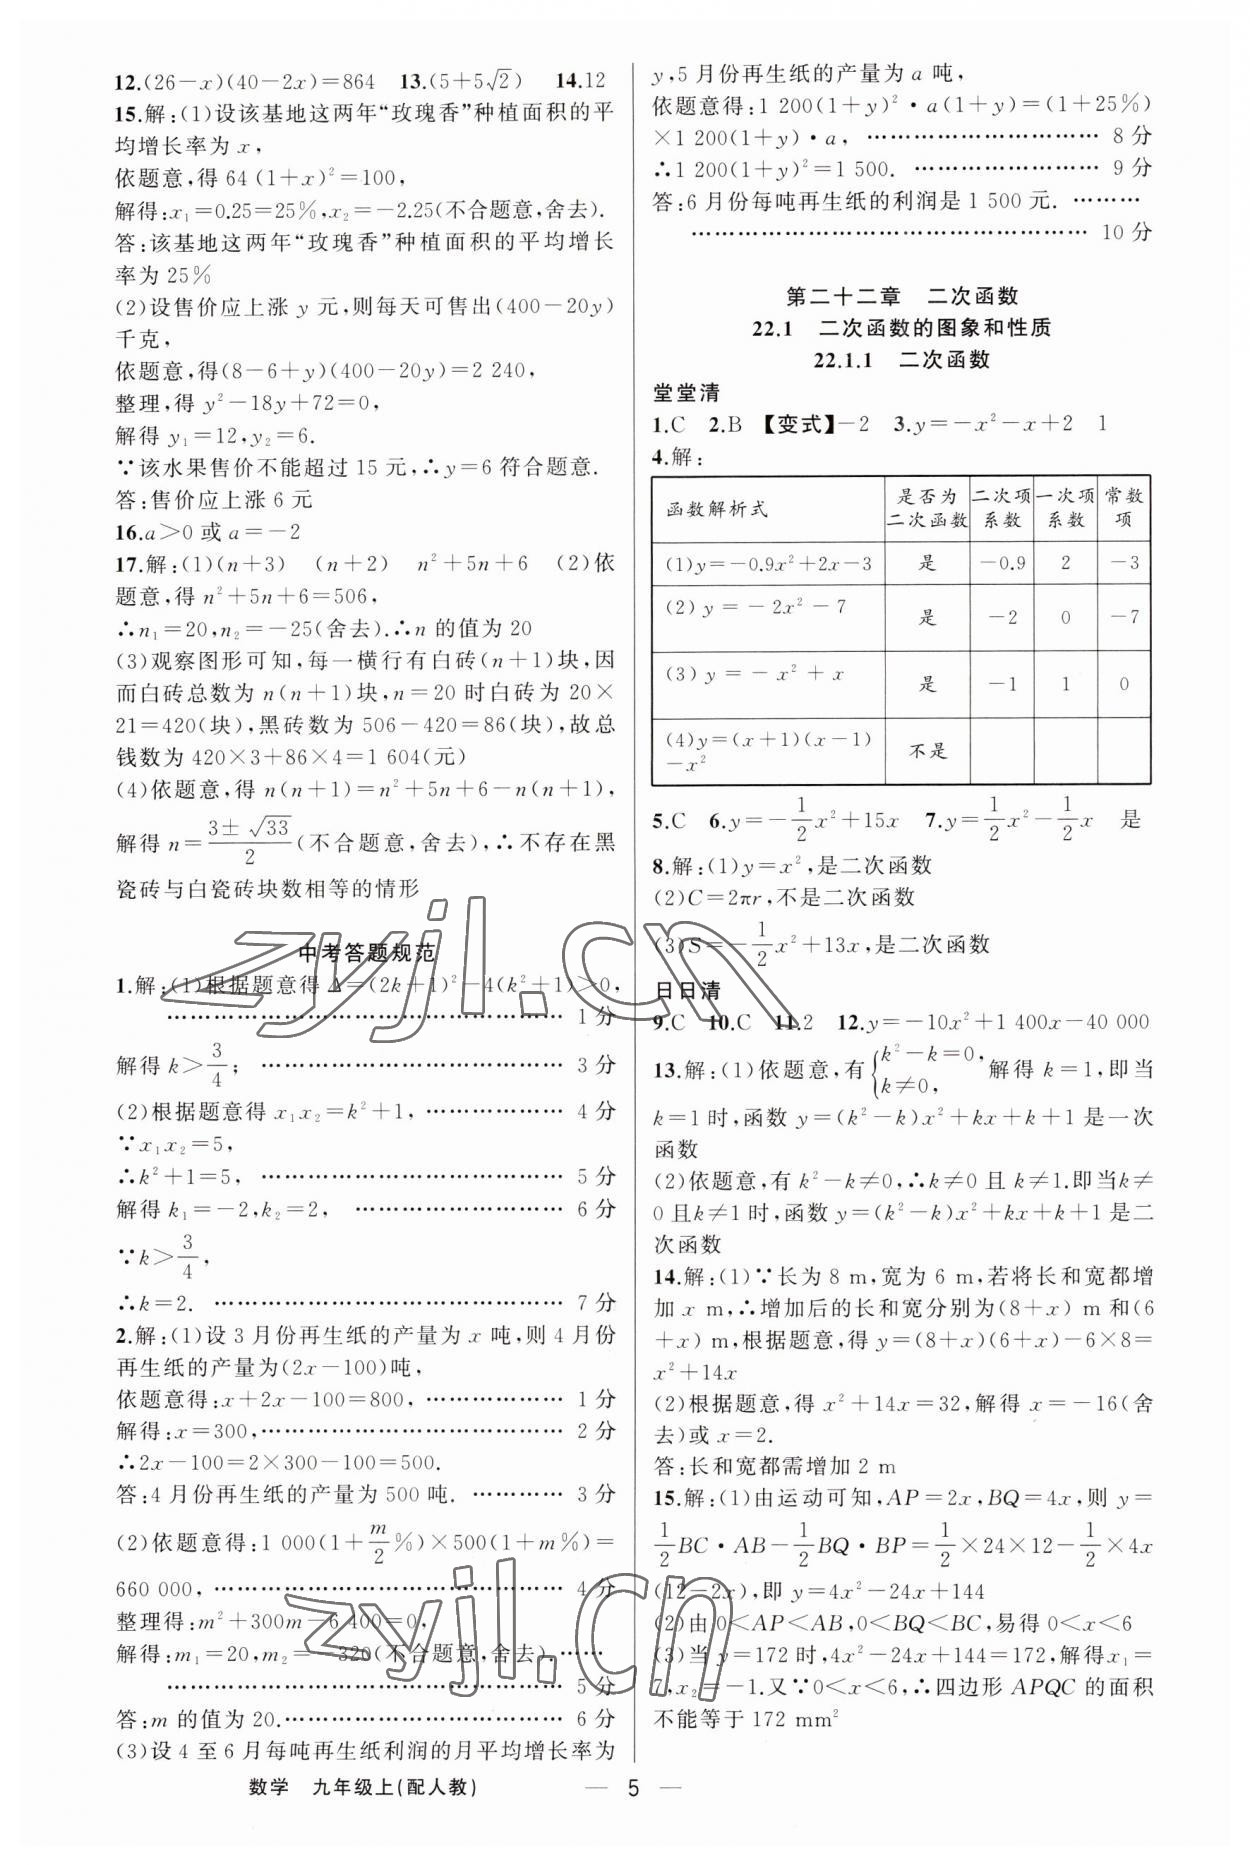 12.(26-x)(40-2x)=864 13.(5+5√2) 14.12
15.解:(1)设该基地这两年“玫瑰香”种植面积的平
均增长率为 x,
依题意,得 64(1+x)²=100,
解得:x₁=0.25=25%,x₂=-2.25(不合题意,舍去).
答:该基地这两年“玫瑰香”种植面积的平均增长
率为 25%
(2)设售价应上涨 y 元,则每天可售出(400-20y)
千克,
依题意,得(8-6+y)(400-20y)=2 240,
整理,得 y²-18y+72=0,
解得 y₁=12,y₂=6.
∵该水果售价不能超过 15 元,∴y=6 符合题意.
答:售价应上涨 6 元
16.a>0 或 a=-2
17.解:(1)(n+3) (n+2) n²+5n+6 (2)依
题意,得 n²+5n+6=506,
∴n₁=20,n₂=-25(舍去).∴n 的值为 20
(3)观察图形可知,每一横行有白砖(n+1)块,因
而白砖总数为 n(n+1)块,n=20 时白砖为 20×
21=420(块),黑砖数为 506-420=86(块),故总
钱数为 420×3+86×4=1 604(元)
(4)依题意,得 n(n+1)=n²+5n+6-n(n+1),
解得 n=(3±√33)/2(不合题意,舍去),∴不存在黑
瓷砖与白瓷砖块数相等的情形
中考答题规范
1.解:(1)根据题意得 Δ=(2k+1)²-4(k²+1)>0,
……………………………………………… 1 分
解得 k>3/4; ……………………………………… 3 分
(2)根据题意得 x₁x₂=k²+1, ………………… 4 分
∵x₁x₂=5,
∴k²+1=5, ……………………………………… 5 分
解得 k₁=-2,k₂=2, ………………………… 6 分
∵k>3/4,
∴k=2. …………………………………………… 7 分
2.解:(1)设 3 月份再生纸的产量为 x 吨,则 4 月份
再生纸的产量为(2x-100)吨,
依题意得:x+2x-100=800, ………………… 1 分
解得:x=300, …………………………………… 2 分
∴2x-100=2×300-100=500.
答:4 月份再生纸的产量为 500 吨. ………… 3 分
(2)依题意得:1 000(1+m/2%)×500(1+m%)=
660 000, ………………………………………… 4 分
整理得:m²+300m-6 400=0,
解得:m₁=20,m₂=-320(不合题意,舍去). ……
……………………………………………… 5 分
答:m 的值为 20. ……………………………… 6 分
(3)设 4 至 6 月每吨再生纸利润的月平均增长率为
y,5 月份再生纸的产量为 a 吨,
依题意得:1 200(1+y)²·a(1+y)=(1+25%)
×1 200(1+y)·a, …………………………… 8 分
∴1 200(1+y)²=1 500. ……………………… 9 分
答:6 月份每吨再生纸的利润是 1 500 元. ………
……………………………………………… 10 分
第二十二章 二次函数
22.1 二次函数的图象和性质
22.1.1 二次函数
堂堂清
1.C 2.B 【变式】-2 3.y=-x²-x+2 1
4.解:
函数解析式 是否为二次函数 二次项系数 一次项系数 常数项
(1)y=-0.9x²+2x-3 是 -0.9 2 -3
(2)y=-2x²-7 是 -2 0 -7
(3)y=-x²+x 是 -1 1 0
(4)y=(x+1)(x-1)
-x² 不是
5.C 6.y=-1/2x²+15x 7.y=1/2x²-1/2x 是
8.解:(1)y=x²,是二次函数
(2)C=2πr,不是二次函数
(3)S=-1/2x²+13x,是二次函数
日日清
9.C 10.C 11.2 12.y=-10x²+1 400x-40 000
13.解:(1)依题意,有{k²-k=0, k≠0, 解得 k=1,即当
k=1 时,函数 y=(k²-k)x²+kx+k+1 是一次
函数
(2)依题意,有 k²-k≠0,∴k≠0 且 k≠1.即当k≠
0且k≠1时,函数 y=(k²-k)x²+kx+k+1是二
次函数
14.解:(1)∵长为 8 m,宽为 6 m,若将长和宽都增
加 x m,∴增加后的长和宽分别为(8+x) m 和(6
+x) m,根据题意,得 y=(8+x)(6+x)-6×8=
x²+14x
(2)根据题意,得 x²+14x=32,解得 x=-16(舍
去)或 x=2.
答:长和宽都需增加 2 m
15.解:(1)由运动可知,AP=2x,BQ=4x,则 y=
1/2BC·AB-1/2BQ·BP=1/2×24×12-1/2×4x
(12-2x),即 y=4x²-24x+144
(2)由0<AP<AB,0<BQ<BC,易得 0<x<6
(3)当 y=172 时,4x²-24x+144=172,解得x₁=
7,x₂=-1.又∵0<x<6,∴四边形 APQC 的面积
不能等于 172 mm²
数学 九年级上(配人教) — 5 —
zyjl.cn
zyjl.cn